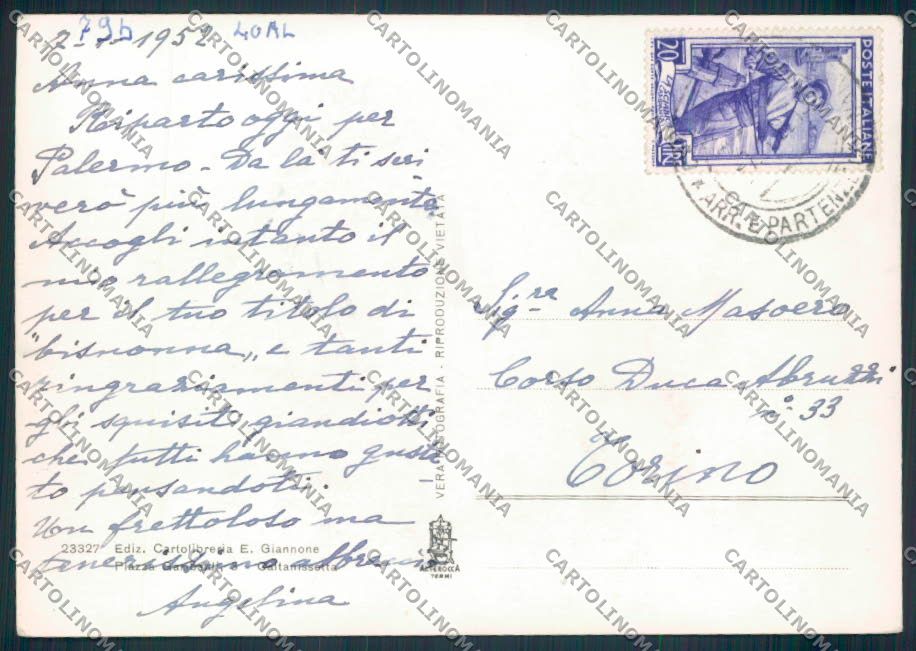 79b 40AL
7- 1952
Anna carissima
Riparto oggi per
Palermo - Da là ti scri
verò più lungamente
Accogli intanto il
mio rallegramento
per il tuo titolo di
"bisnonna„ e tanti
ringraziamenti per
gli squisiti giandiotti
che tutti hanno gusta
to pensandoti.
Un frettoloso ma
tenerissimo abbraccio
Angelina
23327 Ediz. Cartolibreria E. Giannone
Piazza Garibaldi - Caltanissetta
VERA FOTOGRAFIA - RIPRODUZIONE VIETATA
ALTEROCCA
TERNI
POSTE ITALIANE
20
LIRE
ARR. E PARTENZE
Sig.ra Anna Masoero
Corso Duca Abruzzi
n° 33
Torino
CARTOLINOMANIA